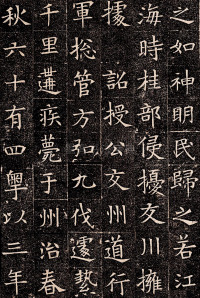 之如神明民歸之若江
海時桂部侵擾交川擁
據　詔授公交州道行
軍揔管方弘九伐遽㙯
千里遘疾薨于州治春
秋六十有四粵以三年